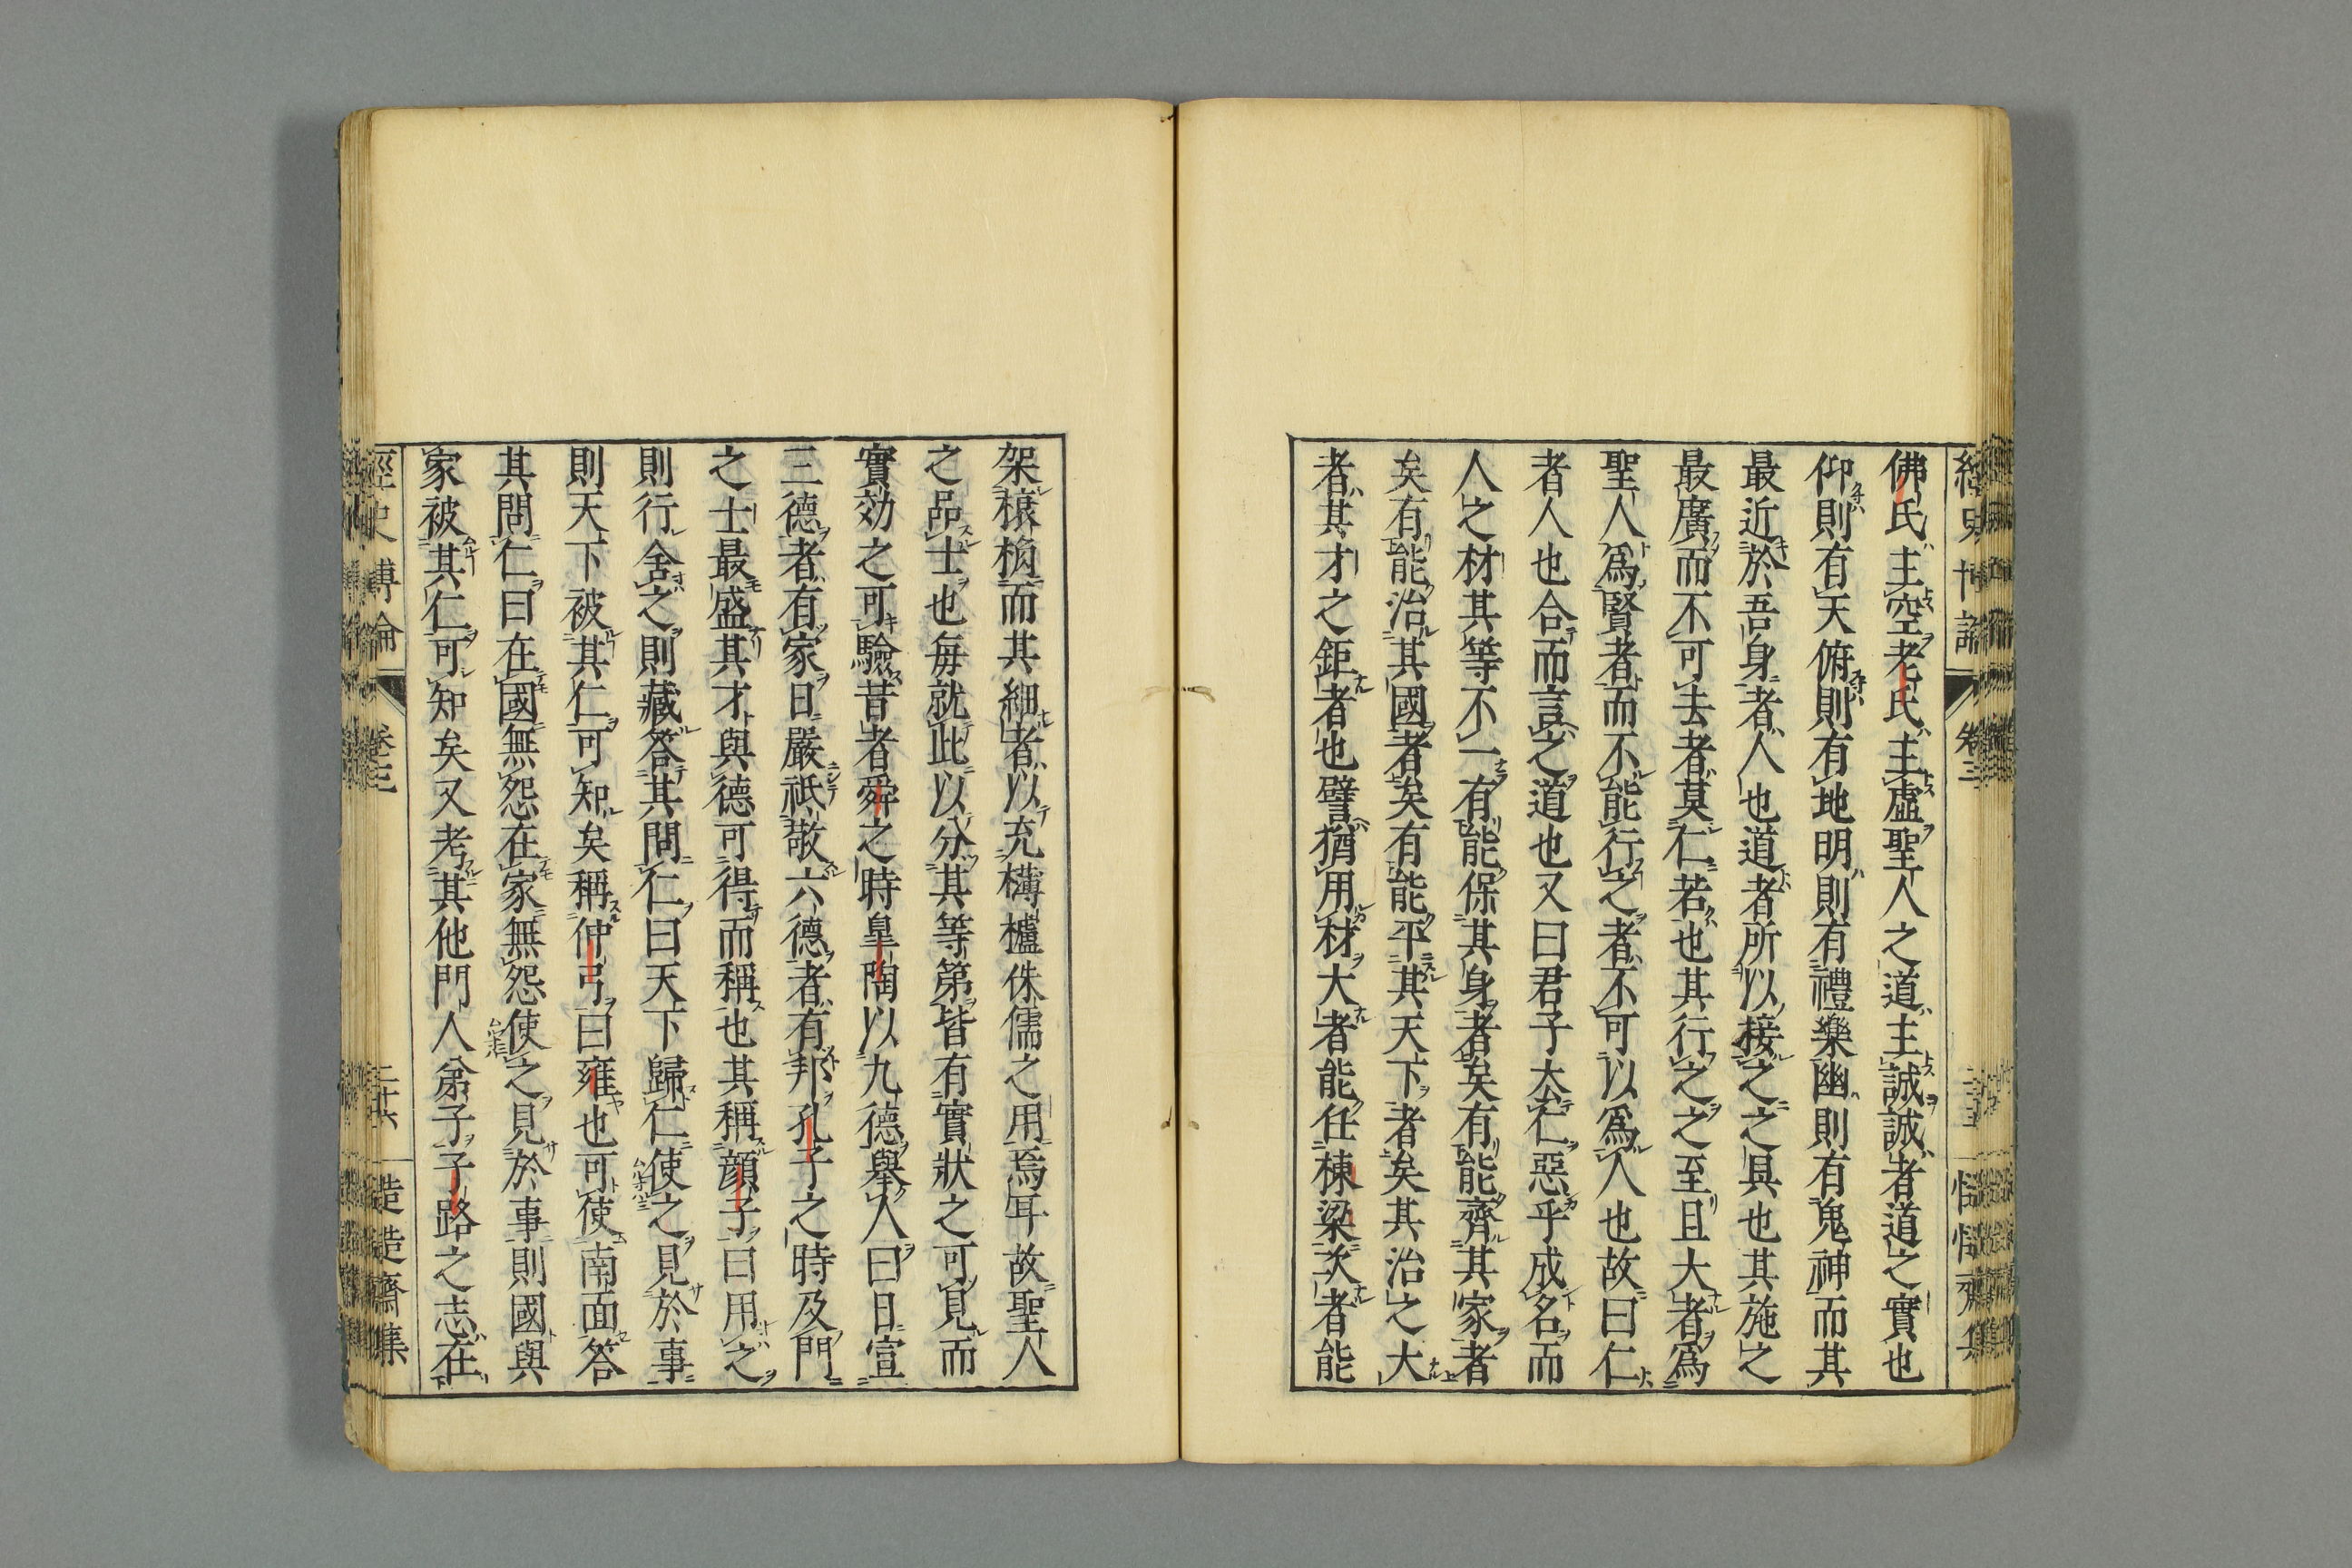 佛氏主空老氏主虛聖人之道主誠誠者道之實也
仰則有天俯則有地明則有禮樂幽則有鬼神而其
最近於吾身者人也道者所以接之之具也其施之
最廣而不可去者莫仁若也其行之之至且大者爲
聖人爲賢者而不能行之者不可以爲人也故曰仁
者人也合而言之道也又曰君子去仁惡乎成名而
人之材其等不一有能保其身者矣有能齊其家者
矣有能治其國者矣有能平其天下者矣其治之大
者其才之鉅者也譬猶用材大者能任棟梁次者能
架榱桷而其細者以充欂櫨侏儒之用焉耳故聖人
之品士也每就此以分其等第皆有實狀之可見而
實効之可驗昔者舜之時皐陶以九德擧人曰日宣
三德者有家日嚴祗敬六德者有邦孔子之時及門
之士最盛其才與德可得而稱也其稱顏子曰用之
則行舍之則藏答其問仁曰天下歸仁使之見於事
則天下被其仁可知矣稱仲弓曰雍也可使南面答
其問仁曰在國無怨在家無怨使之見於事則國與
家被其仁可知矣又考其他門人弟子子路之志在
經史博論
卷三
二十六
造造齋集